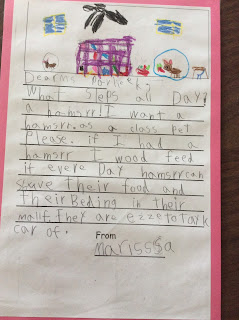 Dearms
What sleps all Day?
a hamsrr! I want a
hamsrr. as a class pet
Please. if I had a
hamsrr I wood feed
it evere Day hamsrr can
save their food and
their Beding in their
They are ezze to tack
car of.
From
marissa